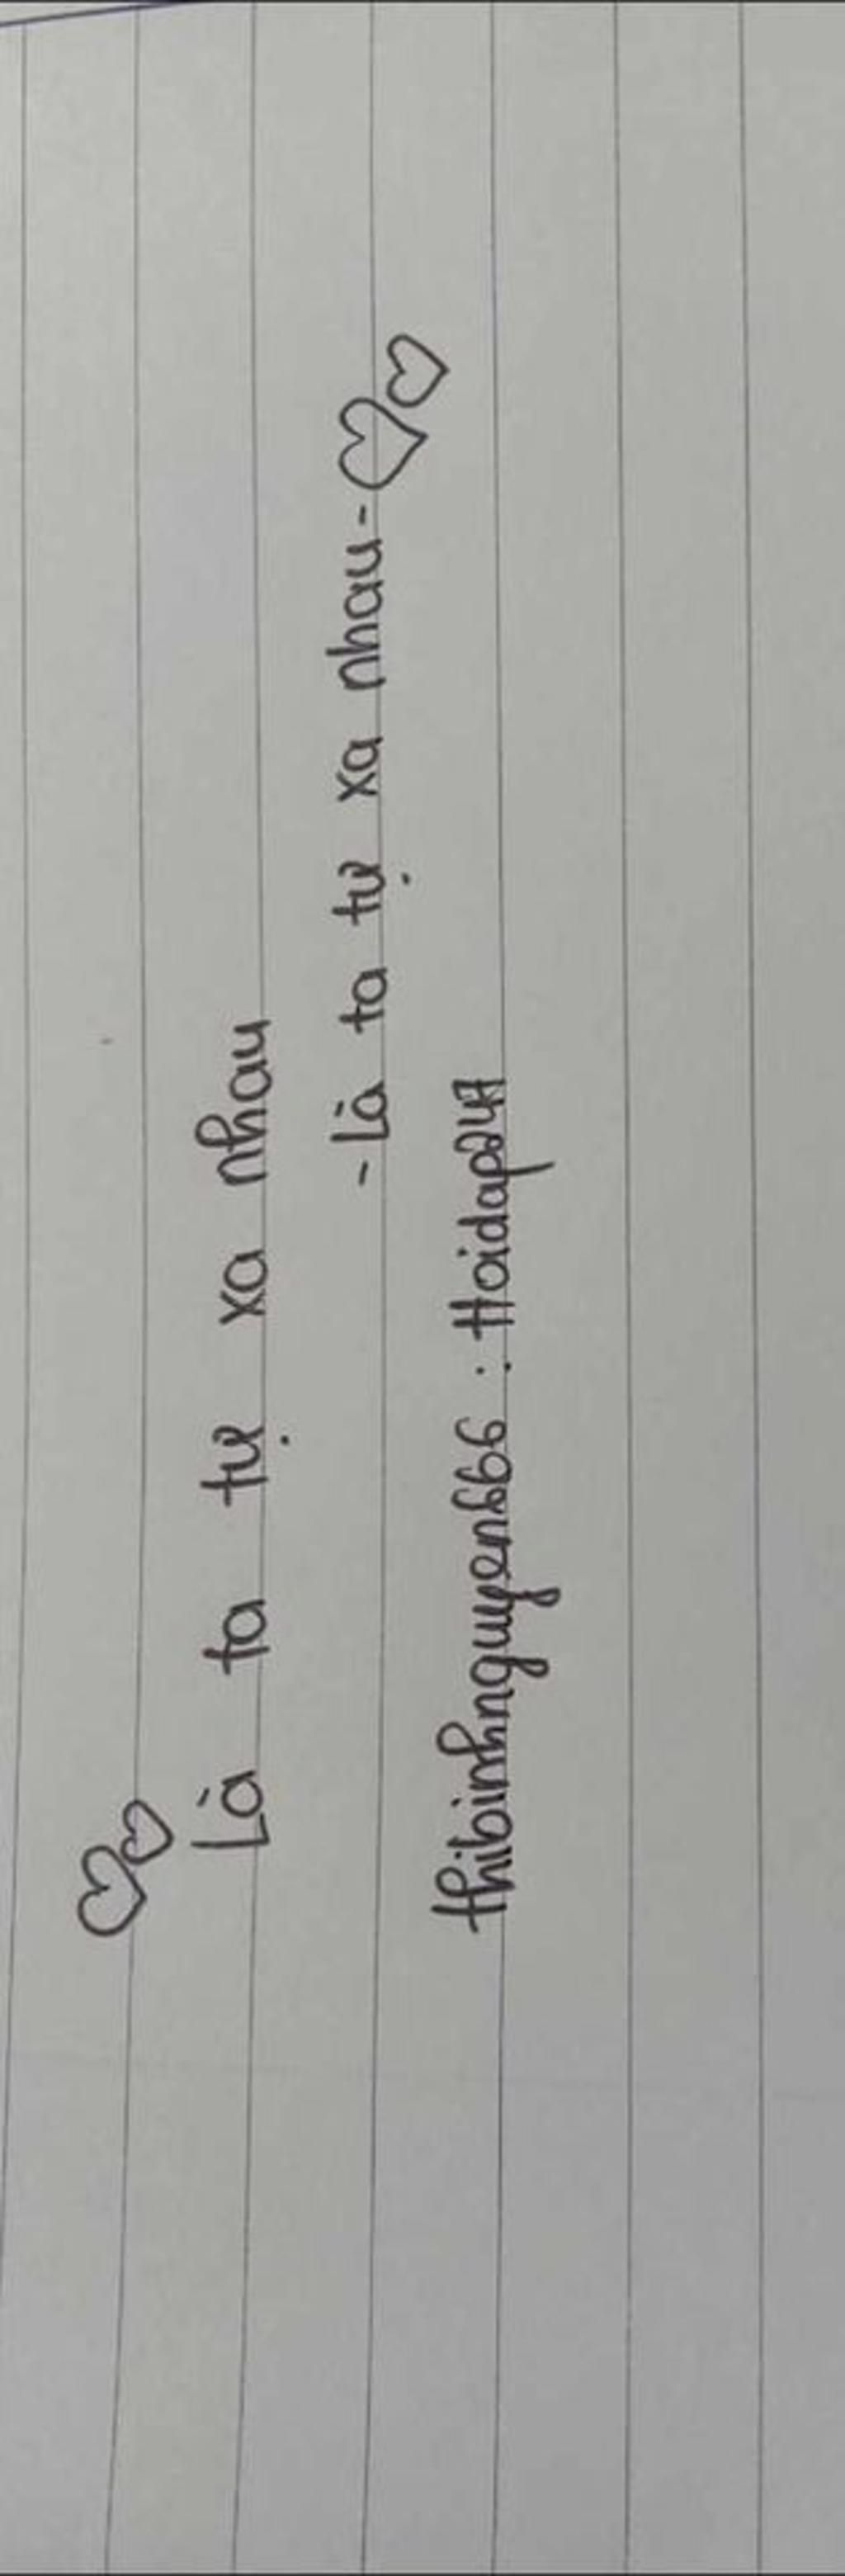 Là ta tự xa nhau
- Là ta tự xa nhau -
thibinhnguyen666 : Hoidap247